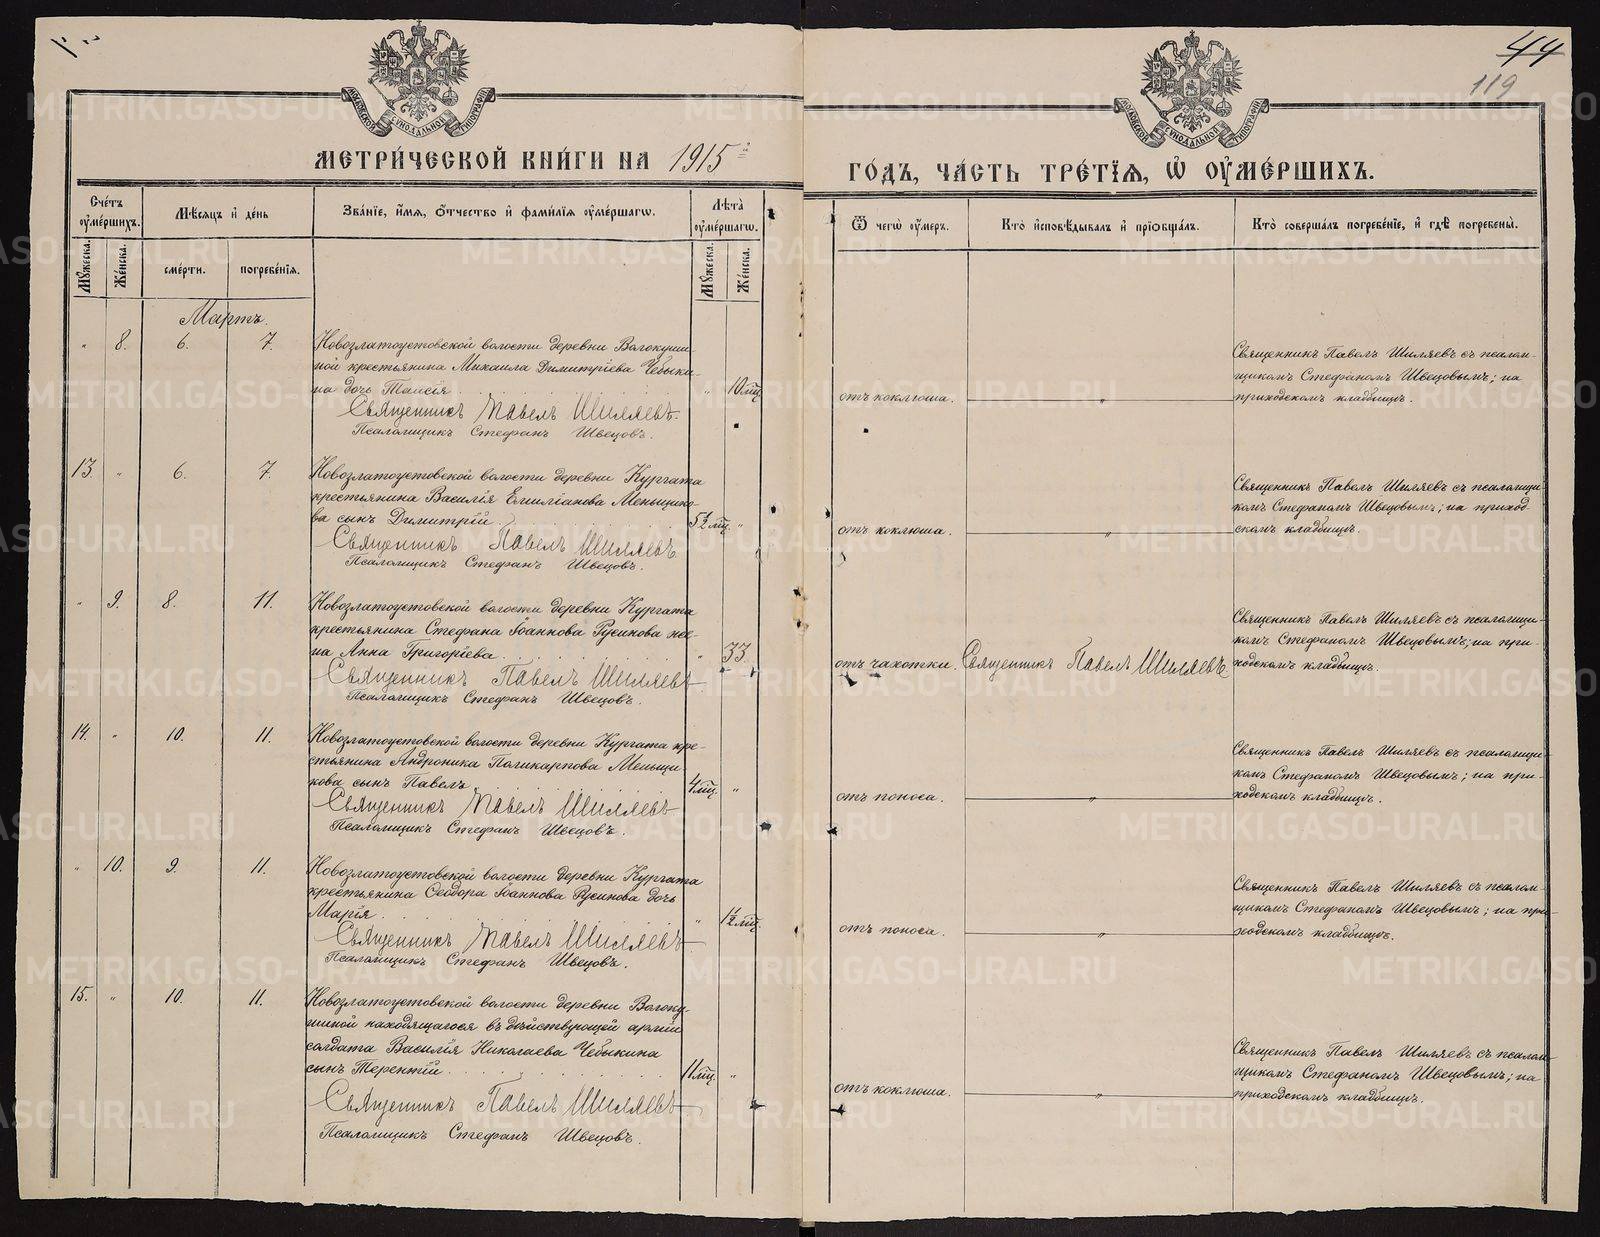 44
119
МОСКОВСКОЙ СѴНОДАЛЬНОЙ ТИПОГРАФІИ
МОСКОВСКОЙ СѴНОДАЛЬНОЙ ТИПОГРАФІИ
МЕТРИ́ЧЕСКОЙ КНИ́ГИ НА 1915 г.
ГО́ДЪ, ЧА́СТЬ ТРЕ́ТІѦ, Ѡ҆ ОУ҆МЕ́РШИХЪ.
Сче́тъ оу҆ме́ршихъ.
Мѣ́сяцъ и҆ де́нь
Зва́нїе, и҆́мѧ, ѻ҆́тчество и҆ фами́лїѧ оу҆ме́ршагѡ.
Лѣ́та оу҆ме́ршагѡ.
Ѿ чегѡ̀ оу҆́меръ.
Кто̀ и҆сповѣ́дывалъ и҆ прїѡбща́лъ.
Кто̀ соверша́лъ погребе́нїе, и҆ гдѣ̀ погребены̀.
Мꙋ́жеска.
Же́нска.
сме́рти.
погребе́нїѧ.
Мꙋ́жеска.
Же́нска.
Мартъ.
" 8. 6. 7. Новозлатоустовской волости деревни Волокушин-
ной крестьянина Михаила Димитріева Чебыки-
на дочь Таисія. " 10 мѣц.
Священникъ Павелъ Шиляевъ.
Псаломщикъ Стефанъ Швецовъ.
отъ коклюша. "
Священникъ Павелъ Шиляевъ съ псалом-
щикомъ Стефаномъ Швецовымъ; на
приходскомъ кладбищѣ.
13. " 6. 7. Новозлатоустовской волости деревни Кургата
крестьянина Василія Емиліанова Меньщико-
ва сынъ Димитрій 5 1/2 мѣц. "
Священникъ Павелъ Шиляевъ
Псаломщикъ Стефанъ Швецовъ.
отъ коклюша. "
Священникъ Павелъ Шиляевъ съ псаломщи-
комъ Стефаномъ Швецовымъ; на приход-
скомъ кладбищѣ.
" 9. 8. 11. Новозлатоустовской волости деревни Кургата
крестьянина Стефана Іоаннова Русинова же-
на Анна Григоріева. " 33.
Священникъ Павелъ Шиляевъ
Псаломщикъ Стефанъ Швецовъ.
отъ чахотки. Священникъ Павелъ Шиляевъ
Священникъ Павелъ Шиляевъ съ псаломщи-
комъ Стефаномъ Швецовымъ; на при-
ходскомъ кладбищѣ.
14. " 10. 11. Новозлатоустовской волости деревни Кургата кре-
стьянина Андроника Поликарпова Меньщи-
кова сынъ Павелъ 4 мѣц. "
Священникъ Павелъ Шиляевъ
Псаломщикъ Стефанъ Швецовъ.
отъ поноса. "
Священникъ Павелъ Шиляевъ съ псаломщи-
комъ Стефаномъ Швецовымъ; на при-
ходскомъ кладбищѣ.
" 10. 9. 11. Новозлатоустовской волости деревни Кургата
крестьянина Ѳеодора Іоаннова Русинова дочь
Марія. " 1 1/2 мѣц.
Священникъ Павелъ Шиляевъ
Псаломщикъ Стефанъ Швецовъ.
отъ поноса. "
Священникъ Павелъ Шиляевъ съ псалом-
щикомъ Стефаномъ Швецовымъ; на при-
ходскомъ кладбищѣ.
15. " 10. 11. Новозлатоустовской волости деревни Волоку-
шиной находящагося въ дѣйствующей арміи
солдата Василія Николаева Чебыкина
сынъ Терентій. 11 мѣц. "
Священникъ Павелъ Шиляевъ
Псаломщикъ Стефанъ Швецовъ.
отъ коклюша. "
Священникъ Павелъ Шиляевъ съ псалом-
щикомъ Стефаномъ Швецовымъ; на
приходскомъ кладбищѣ.
METRIKI.GASO-URAL.RU